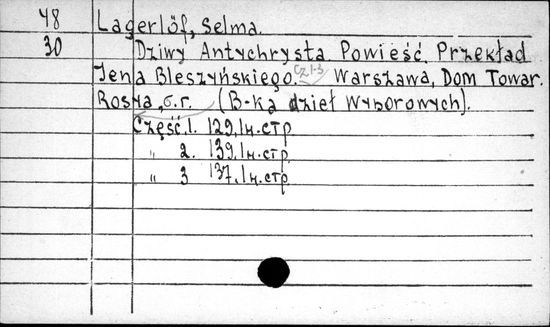 48 Lagerlöf, Selma.
30 Dziwy Antychrysta. Powieść. Przekład
Jena Bleszyńskiego. cz 1-3 Warszawa, Dom Towar.
Rosya, s.r. (B-ka dzieł wyborowych).
Część 1. 129, 1 н.стр
" 2. 139, 1 н.стр
" 3 137, 1 н.стр